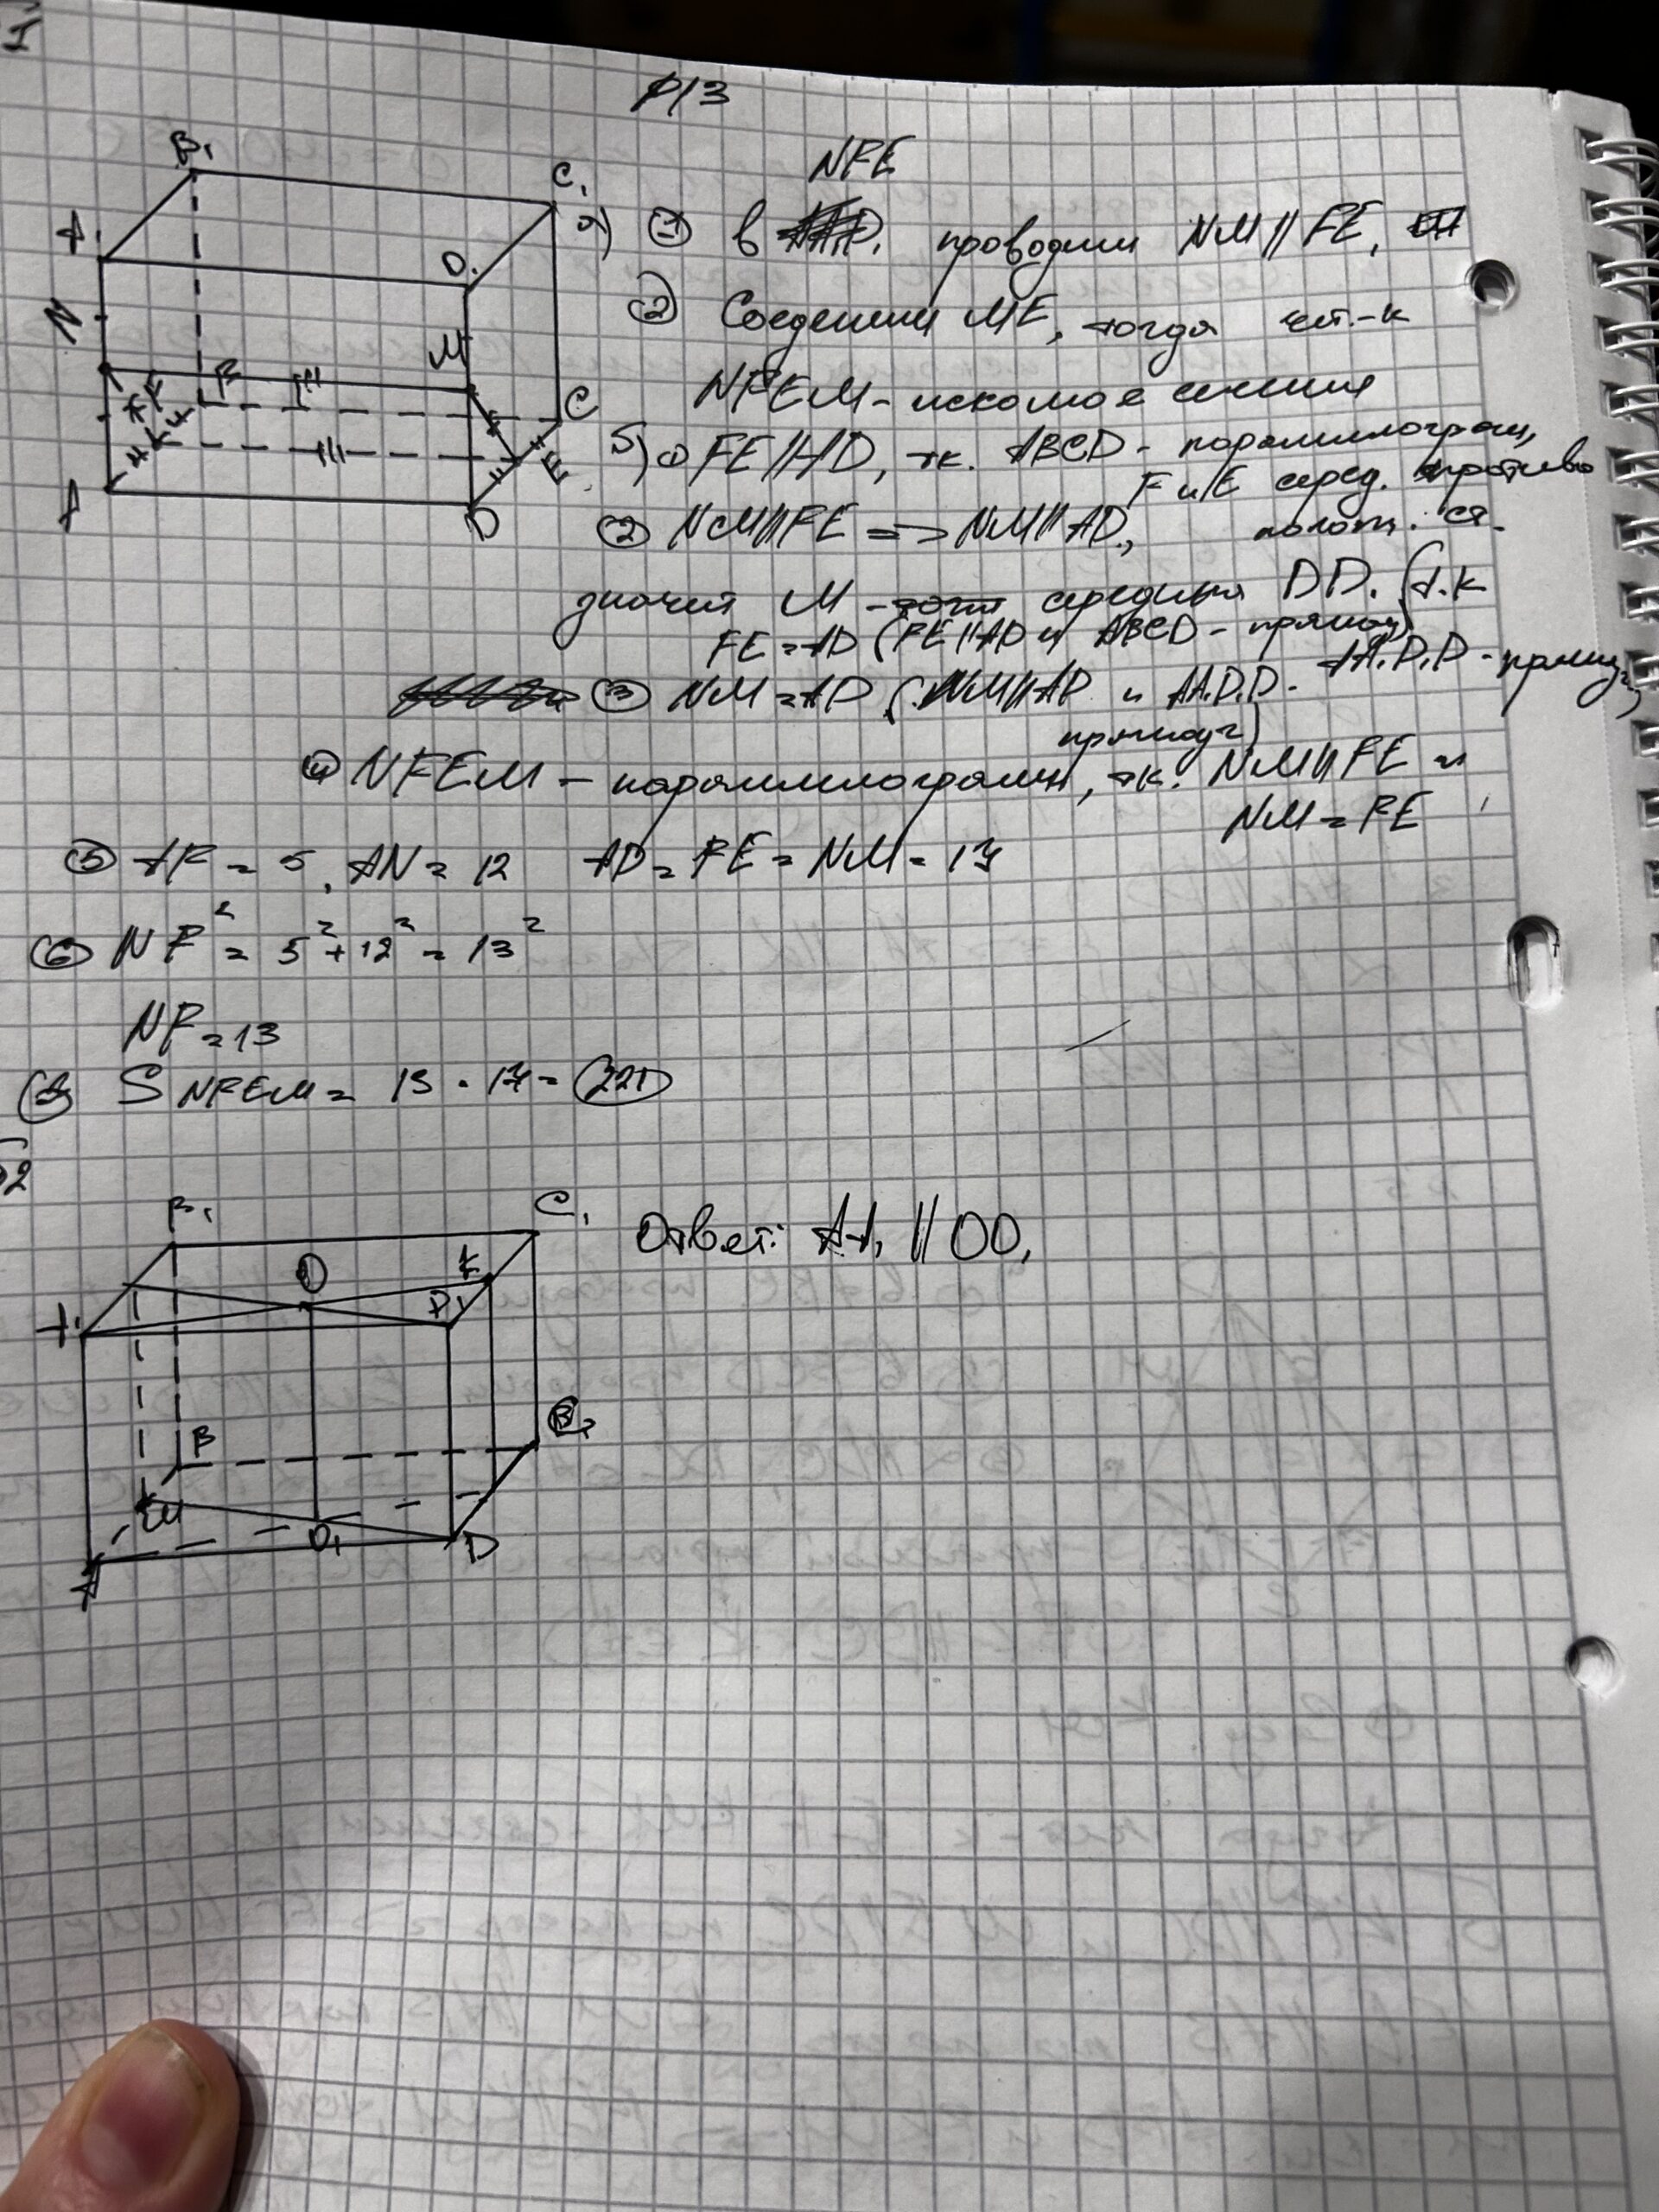 Р/З
B₁
C₁
A₁
D₁
N
M
F
C
E
A
D
NFE
а) ① В проводим NM || FE,
② Соединим ME, тогда чет.-к
NFEM - искомое сечение
б) ① FE || AD, т.к. ABCD - параллелограм,
F и E серед. противо
полож. ст.
② NM || FE => NM || AD,
значит M - середина DD₁ (т.к
AA₁D₁D - прямоуг)
FE = AD (FE || AD и ABCD - прямоуг)
③ NM = AD (NM || AD и AA₁D₁D -
прямоуг)
④ NFEM - параллелограмм, т.к. NM || FE и
NM = FE
⑤ AF = 5, AN = 12 AD = FE = NM = 17
⑥ NF² = 5² + 12² = 13²
NF = 13
⑦ S NFEM = 13 · 17 = 221
2
B₁
C₁
O
K
D₁
A₁
B
M
O₁
D
A
Ответ: AA₁ || OO₁